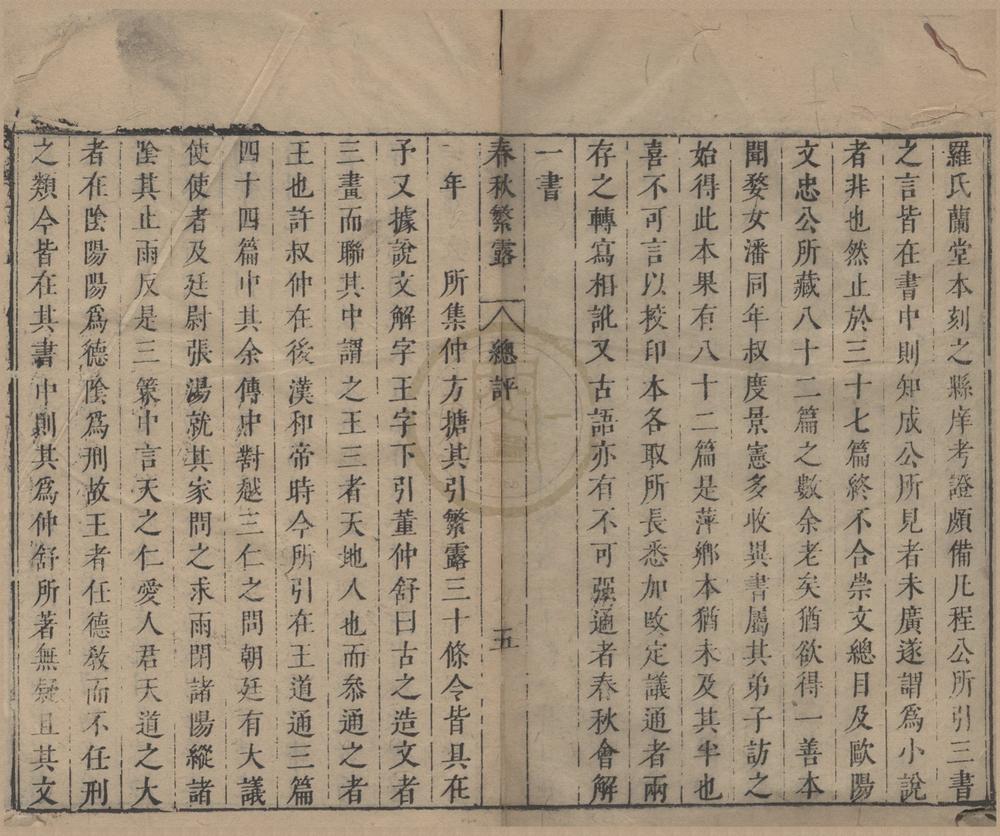 羅氏蘭堂本刻之縣庠考證頗備凡程公所引三書
之言皆在書中則知成公所見者未廣遂謂爲小說
者非也然止於三十七篇終不合崇文總目及歐陽
文忠公所藏八十二篇之數余老矣猶欲得一善本
聞婺女潘同年叔度景憲多收異書屬其弟子訪之
始得此本果有八十二篇是萍鄉本猶未及其半也
喜不可言以校印本各取所長悉加改定議通者兩
存之轉寫相訛又古語亦有不可强通者春秋會解
一書
春秋繁露 總評 五
年 所集仲方摭其引繁露三十條今皆具在
予又據說文解字王字下引董仲舒曰古之造文者
三畫而聯其中謂之王三者天地人也而參通之者
王也許叔仲在後漢和帝時今所引在王道通三篇
四十四篇中其余傳中對越三仁之問朝廷有大議
使使者及廷尉張湯就其家問之求雨閉諸陽縱諸
陰其止雨反是三策中言天之仁愛人君天道之大
者在陰陽陽爲德陰爲刑故王者任德敎而不任刑
之類今皆在其書中則其爲仲舒所著無疑且其文